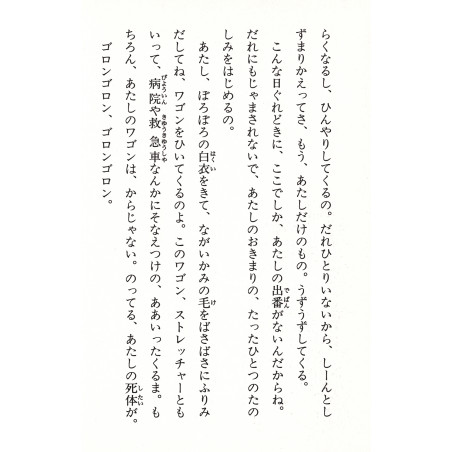 らくなるし、ひんやりしてくるの。だれひとりいないから、しーんとし
ずまりかえってさ、もう、あたしだけのもの。うずうずしてくる。
こんな日ぐれどきに、ここでしか、あたしの出番がないんだからね。
だれにもじゃまされないで、あたしのおきまりの、たったひとつのたの
しみをはじめるの。
あたし、ぼろぼろの白衣をきて、ながいかみの毛をばさばさにふりみ
だしてね、ワゴンをひいてくるのよ。このワゴン、ストレッチャーとも
いって、病院や救急車なんかにそなえつけの、ああいったくるま。も
ちろん、あたしのワゴンは、からじゃない。のってる、あたしの死体が。
ゴロンゴロン、ゴロンゴロン。